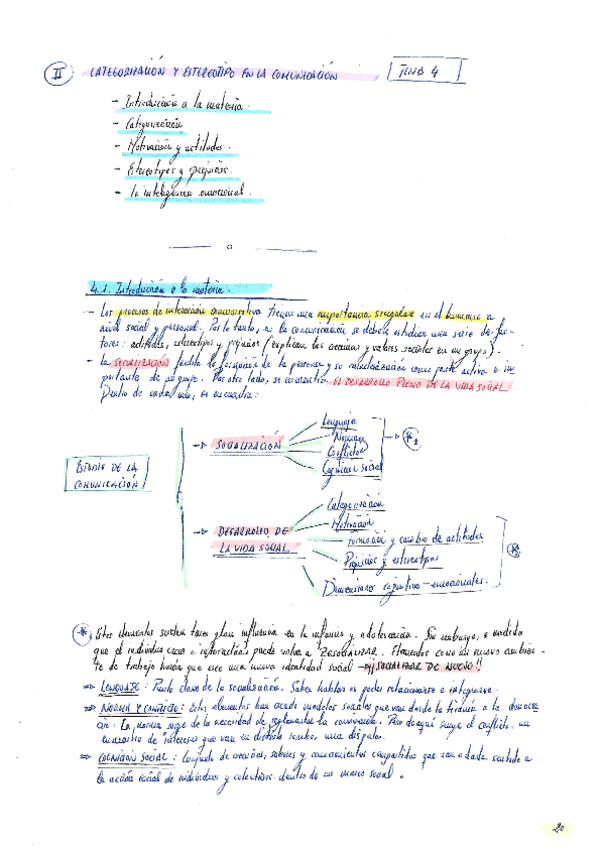 II CATEGORIZACIÓN Y ESTEREOTIPO EN LA COMUNICACIÓN TEMA 4
- Introducción a la materia.
- Categorización
- Motivación y actitudes.
- Estereotipos y prejuicios.
- La inteligencia emocional.
4.1. Introducción a la materia.
- Los procesos de interacción comunicativa tienen una importancia singular en el humano a
nivel social y personal. Por lo tanto, en la comunicación se deben estudiar una serie de fac-
tores: actitudes, estereotipos y prejuicios (explican las creencias y valores sociales en un grupo).
- La SOCIALIZACIÓN facilita la formación de la persona y su caracterización como parte activa e im
portante de un grupo. Por otro lado, se encuentra EL DESARROLLO PLENO DE LA VIDA SOCIAL
Dentro de cada uno, se encuentra:
ESTUDIO DE LA
COMUNICACIÓN
SOCIALIZACIÓN
Lenguaje
Normas
Conflictos
Cognición social
DESARROLLO DE
LA VIDA SOCIAL
Categorización
Motivación
Formación y cambio de actitudes
Prejuicios y estereotipos
Dimensiones cognitivo-emocionales.
* Estos elementos suelen tener gran influencia en la infancia y adolescencia. Sin embargo, a medida
que el individuo crece e interactúa puede volver a RESOCIALIZAR. Elementos como un nuevo ambien-
te de trabajo harán que cree una nueva identidad social → ¡¡SOCIALIZAR DE NUEVO!!
⇒ LENGUAJE: Parte clave de la socialización. Saber hablar es poder relacionarse e integrarse.
⇒ NORMA Y CONFLICTO: Estos elementos han creado modelos sociales que van desde la tiranía a la democra
cia. La norma surge de la necesidad de reglamentar la convivencia. Pero de aquí surge el conflicto, un
encuentro de intereses que van en distinto rumbo, una disputa.
⇒ COGNICIÓN SOCIAL: Conjunto de creencias, saberes y conocimientos compartidos que van a darle sentido a
la acción social de individuos y colectivos dentro de un marco social.
20